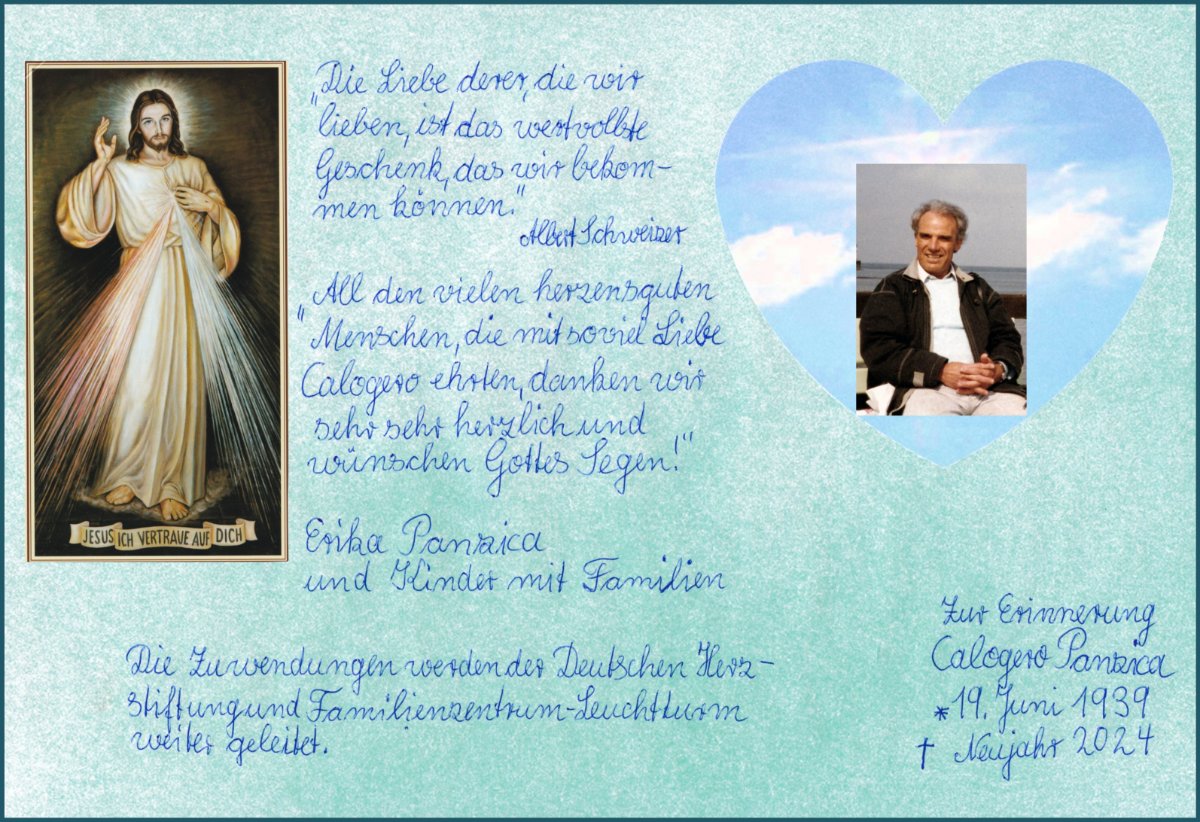 „Die Liebe derer, die wir
lieben, ist das wertvollste
Geschenk, das wir bekom-
men können."
Albert Schweizer
„All den vielen herzensguten
Menschen, die mit soviel Liebe
Calogero ehrten, danken wir
sehr sehr herzlich und
wünschen Gottes Segen!"
Erika Panzica
und Kinder mit Familien
JESUS ICH VERTRAUE AUF DICH
Die Zuwendungen werden der Deutschen Herz-
stiftung und Familienzentrum-Leuchtturm
weiter geleitet.
Zur Erinnerung
Calogero Panzica
* 19. Juni 1939
† Neujahr 2024